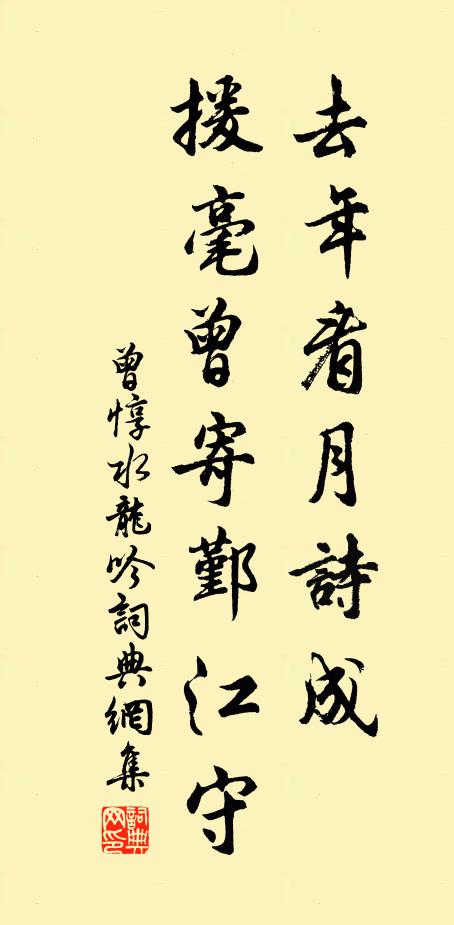 去年看月詩成
援毫曾寄鄞江守
曾惇水龍吟詞典網集
詞典网印